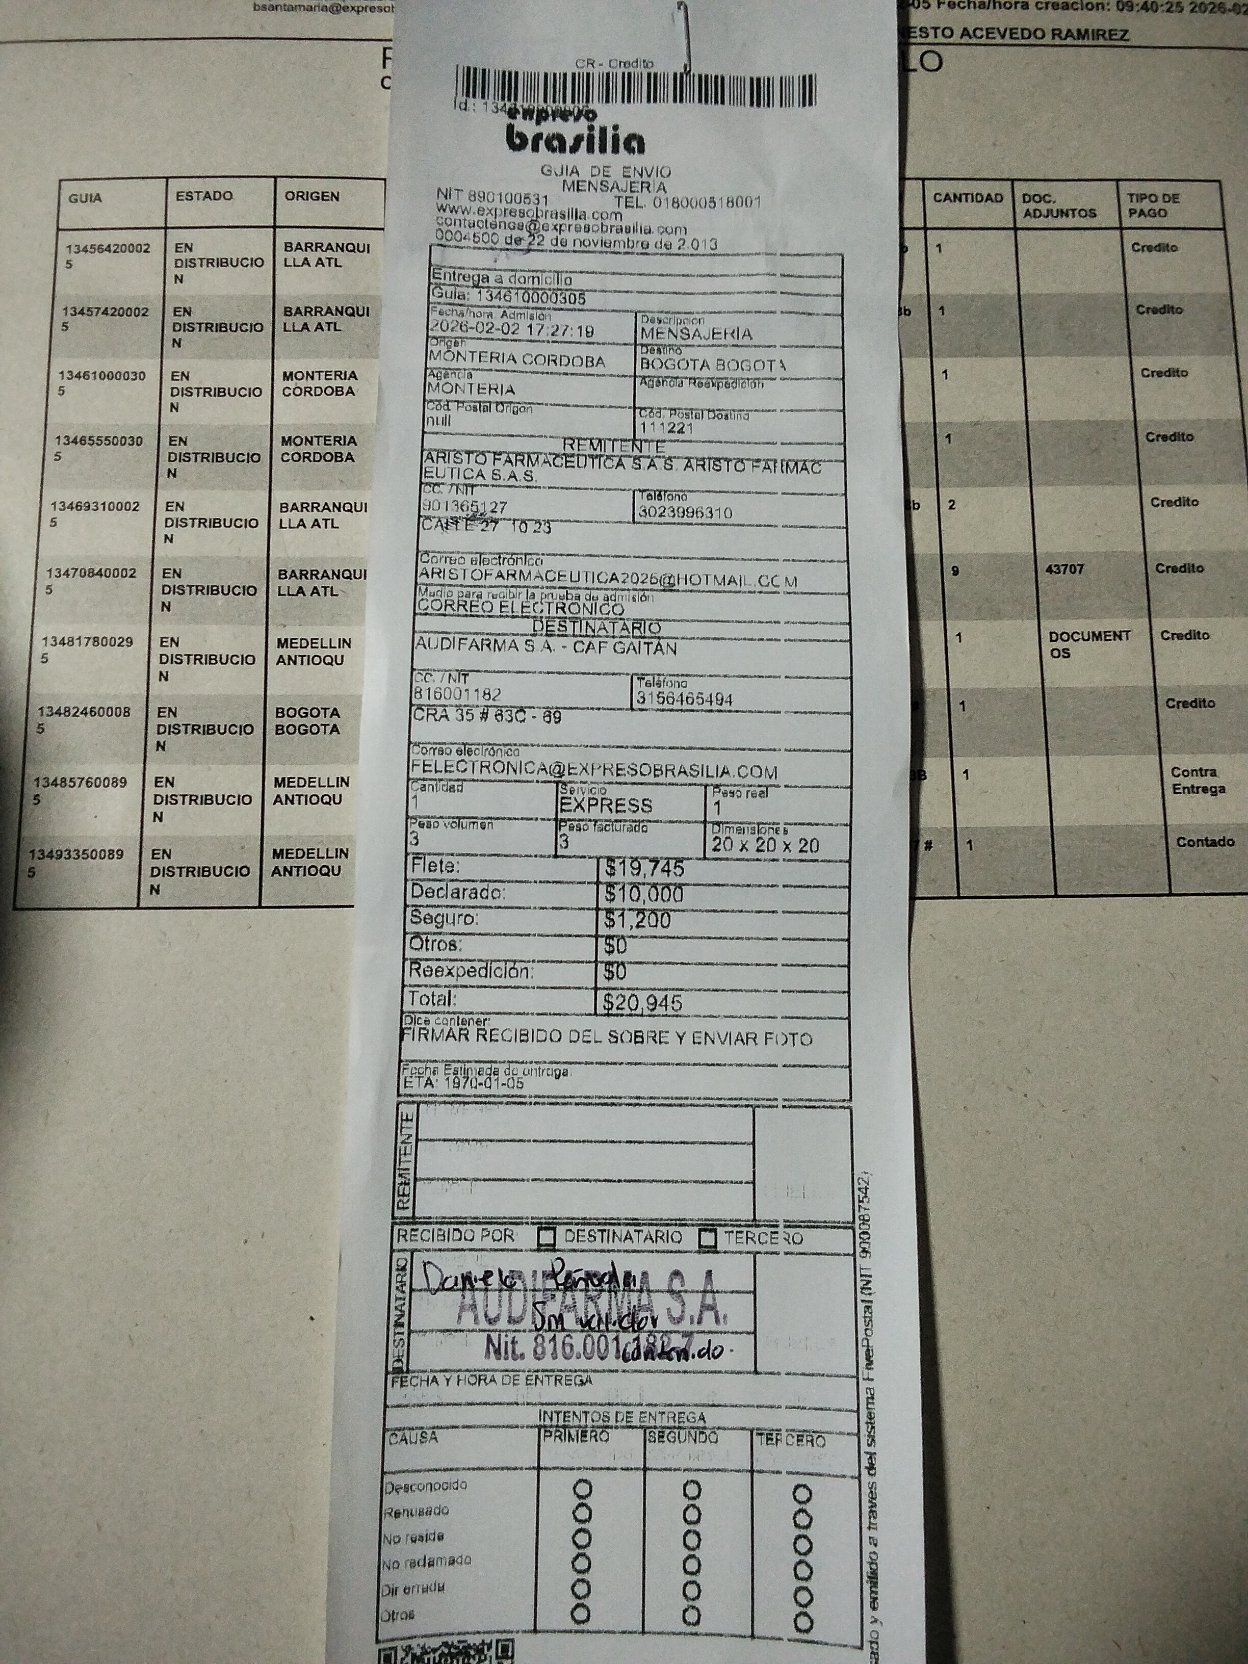 05 Fecha/hora creacion: 09:40:25 2026-02
ESTO ACEVEDO RAMIREZ
LO
CR - Credito
expreso
brasilia
GUIA DE ENVIO
MENSAJERIA
NIT 890100531 TEL. 018000518001
www.expresobrasilia.com
contactenos@expresobrasilia.com
0004500 de 22 de noviembre de 2.013
Entrega a domicilio
Guia: 134610000305
Fecha/hora Admisión Descripcion
2026-02-02 17:27:19 MENSAJERIA
Origen Destino
MONTERIA CORDOBA BOGOTA BOGOTA
Agencia Agencia Reexpedición
MONTERIA
Cód. Postal Origen Cód. Postal Destino
null 111221
REMITENTE
ARISTO FARMACEUTICA S.A.S. ARISTO FARMAC
EUTICA S.A.S.
CC. /NIT Teléfono
901365127 3023996310
CALLE 27 10 23
Correo electrónico
ARISTOFARMACEUTICA2026@HOTMAIL.COM
Medio para recibir la prueba de admisión
CORREO ELECTRÓNICO
DESTINATARIO
AUDIFARMA S.A. - CAF GAITÁN
CC. /NIT Teléfono
816001182 3156465494
CRA 35 # 63C - 69
Correo electrónico
FELECTRONICA@EXPRESOBRASILIA.COM
Cantidad Servicio Peso real
1 EXPRESS 1
Peso volumen Peso facturado Dimensiones
3 3 20 x 20 x 20
Flete: $19,745
Declarado: $10,000
Seguro: $1,200
Otros: $0
Reexpedición: $0
Total: $20,945
Dice contener:
FIRMAR RECIBIDO DEL SOBRE Y ENVIAR FOTO
Fecha Estimada de entrega:
ETA: 1970-01-05
REMITENTE
RECIBIDO POR: DESTINATARIO TERCERO
DESTINATARIO
Daniela
AUDIFARMA S.A.
Sin validar
Nit. 816.001.182-7
contenido.
FECHA Y HORA DE ENTREGA
INTENTOS DE ENTREGA
CAUSA PRIMERO SEGUNDO TERCERO
Desconocido
Rehusado
No reside
No reclamado
Dir errada
Otros
ado y emitido a traves del sistema FivePostal (NIT 900087542)
GUIA ESTADO ORIGEN CANTIDAD DOC. ADJUNTOS TIPO DE PAGO
134564200025 EN DISTRIBUCION BARRANQUILLA ATL 1 Credito
134574200025 EN DISTRIBUCION BARRANQUILLA ATL 1 Credito
134610000305 EN DISTRIBUCION MONTERIA CORDOBA 1 Credito
134655500305 EN DISTRIBUCION MONTERIA CORDOBA 1 Credito
134693100025 EN DISTRIBUCION BARRANQUILLA ATL 2 Credito
134708400025 EN DISTRIBUCION BARRANQUILLA ATL 9 43707 Credito
134817800295 EN DISTRIBUCION MEDELLIN ANTIOQU 1 DOCUMENTOS Credito
134824600085 EN DISTRIBUCION BOGOTA BOGOTA 1 Credito
134857600895 EN DISTRIBUCION MEDELLIN ANTIOQU 1 Contra Entrega
134933500895 EN DISTRIBUCION MEDELLIN ANTIOQU # 1 Contado